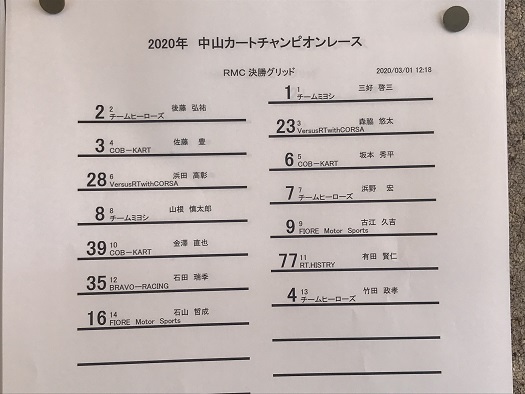 2020年　中山カートチャンピオンレース
RMC 決勝グリッド
2020/03/01 12:18
1 1 三好 啓三
チームミヨシ
2 2 後藤 弘祐
チームヒーローズ
23 3 森脇 悠太
VersusRTwithCORSA
3 4 佐藤 豊
COB-KART
6 5 坂本 秀平
COB-KART
28 6 浜田 高彰
VersusRTwithCORSA
7 7 浜野 宏
チームヒーローズ
8 8 山根 慎太郎
チームミヨシ
9 9 古江 久吉
FIORE Motor Sports
39 10 金澤 直也
COB-KART
77 11 有田 賢仁
RT.HISTRY
35 12 石田 瑞季
BRAVO-RACING
4 13 竹田 政孝
チームヒーローズ
16 14 石山 哲成
FIORE Motor Sports